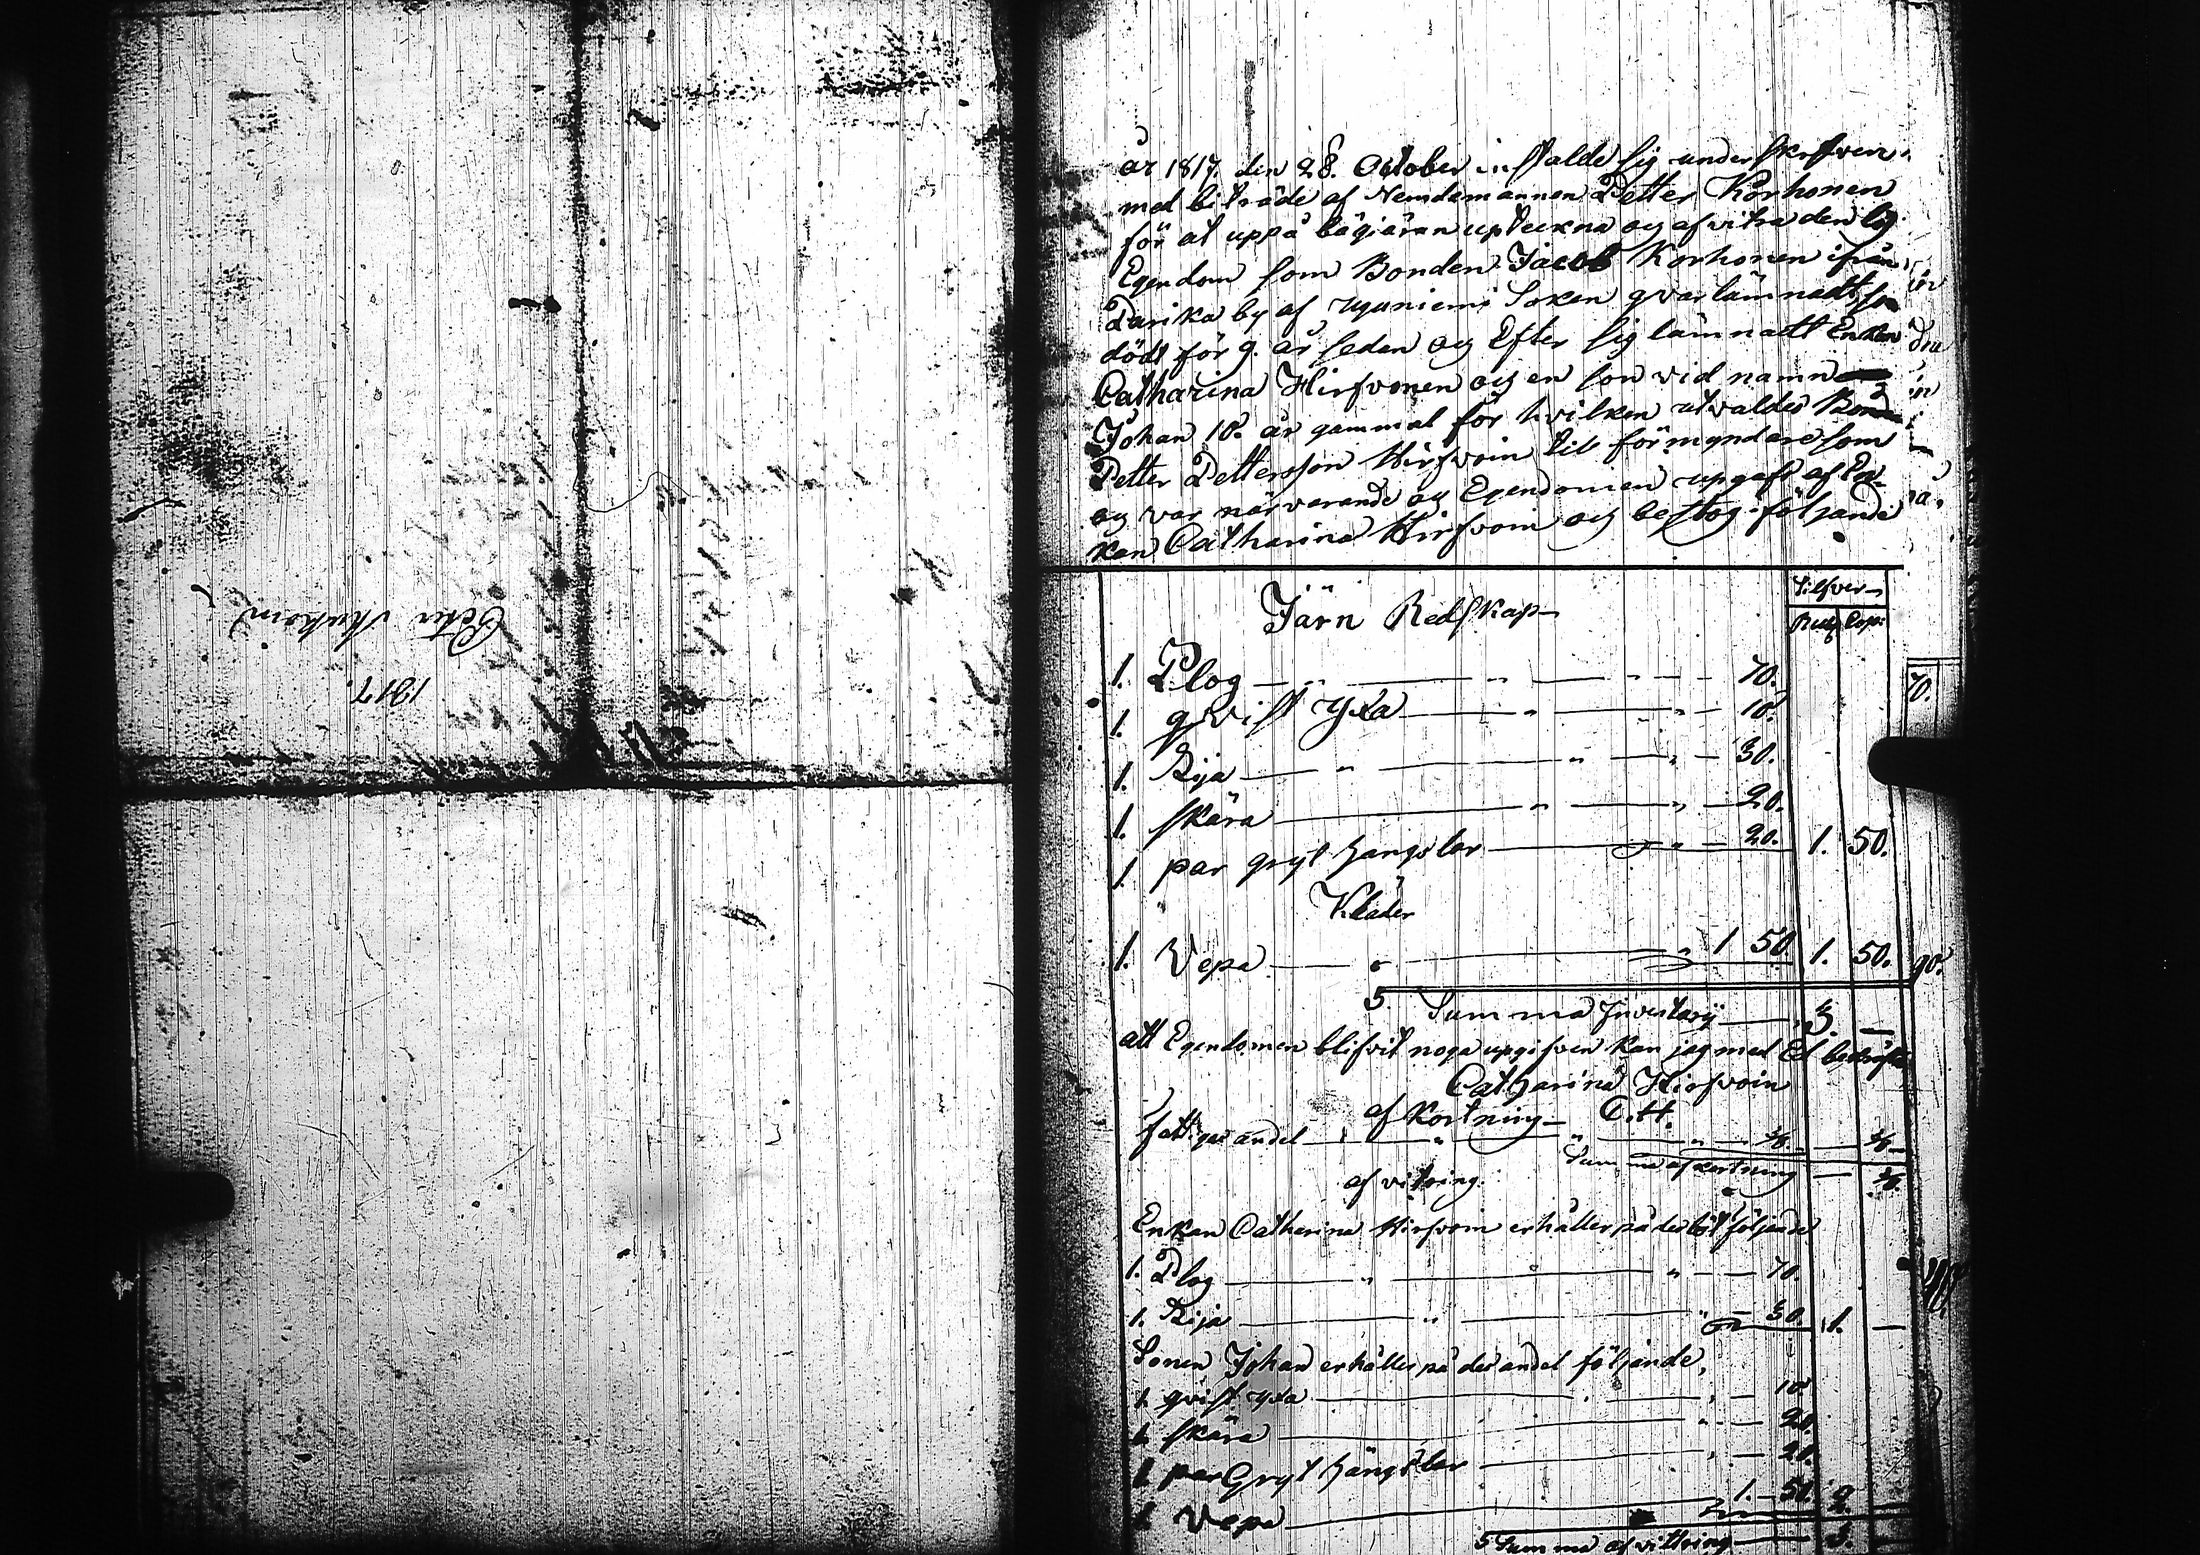 1817.
år 1817. den 28. October instalde sig underskrefven
med biträde af Nemdemannen Petter Korhonen
för at uppå bägiäran upteckna og afvitra den
Egendom som Bonden Jacob Korhonen ifrån
by af Uguniemi Soken qvarlämnadt som
dödt för 9. år sedan og Efter sig lämnadt Enkan
Catharina Hirfvonen og en son vid namn
Johan 10. år gammal för hvilken utvaldes
Petter Pettersson Hirfvoin til förmyndare som
og var närvarande og Egendomen upgaft af En-
kan Catharina Hirfvoin og bestog i följande
Järn Redskap Silfver
Rub Cop:
1. Plog 70.
1. qvist yxa 10.
1. Lija 30.
1. skära 20.
1. par gryt hängslor 20. 1. 50.
Kläder
1. Vepa 1 50 1. 50.
5. Summa Inventarij 3. —
att Egendomen blifvit noga upgifven kan jag med Ed bekräfta
Catharina Hirfvoin
afkortning C.H.
fattigas andel
Summa afkortning
afvitring
Enkan Catharina Hirfvoin erhåller på des följande
1. Plog 70.
1. Lija 30. 1. —
Sonen Johan erhåller på des andel följande,
1. qvist yxa 10
1. skära 20
1. par Gryt hängslor 20.
1. Vepa 1. 50. 2.
5 Summa afvittring 3.
70.
90.